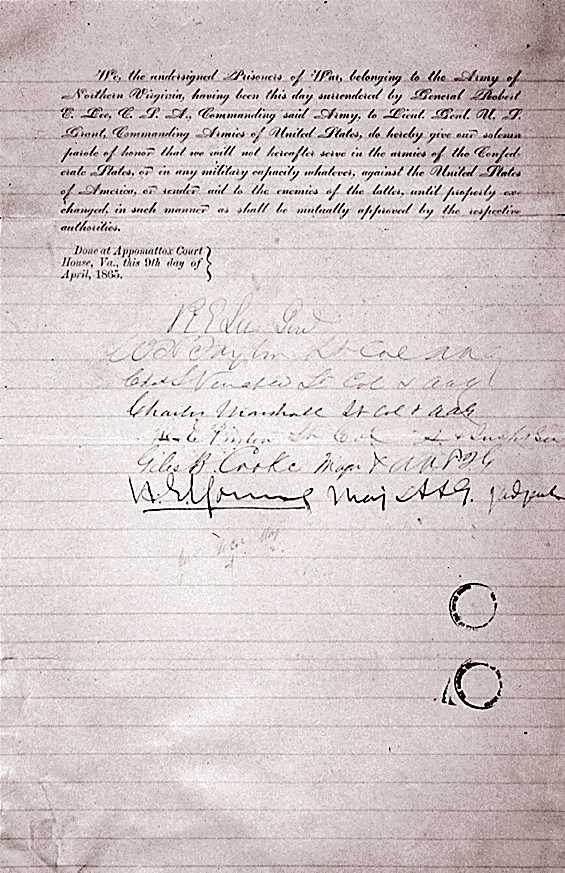 We, the undersigned Prisoners of War, belonging to the Army of
Northern Virginia, having been this day surrendered by General Robert
E. Lee, C. S. A., Commanding said Army, to Lieut. Genl. U. S.
Grant, Commanding Armies of United States, do hereby give our solemn
parole of honor that we will not hereafter serve in the armies of the Confed-
erate States, or in any military capacity whatever, against the United States
of America, or render aid to the enemies of the latter, until properly ex-
changed, in such manner as shall be mutually approved by the respective
authorities.
Done at Appomattox Court
House, Va., this 9th day of
April, 1865.
R E Lee Genl
W H Taylor Lt Col A A G
Chas S Venable Lt Col & AAG
Charles Marshall Lt Col & AAG
H E Peyton Lt Col & Inspt Gen
Giles B. Cooke Major & A A & I G
H. E. Young Maj AAG.